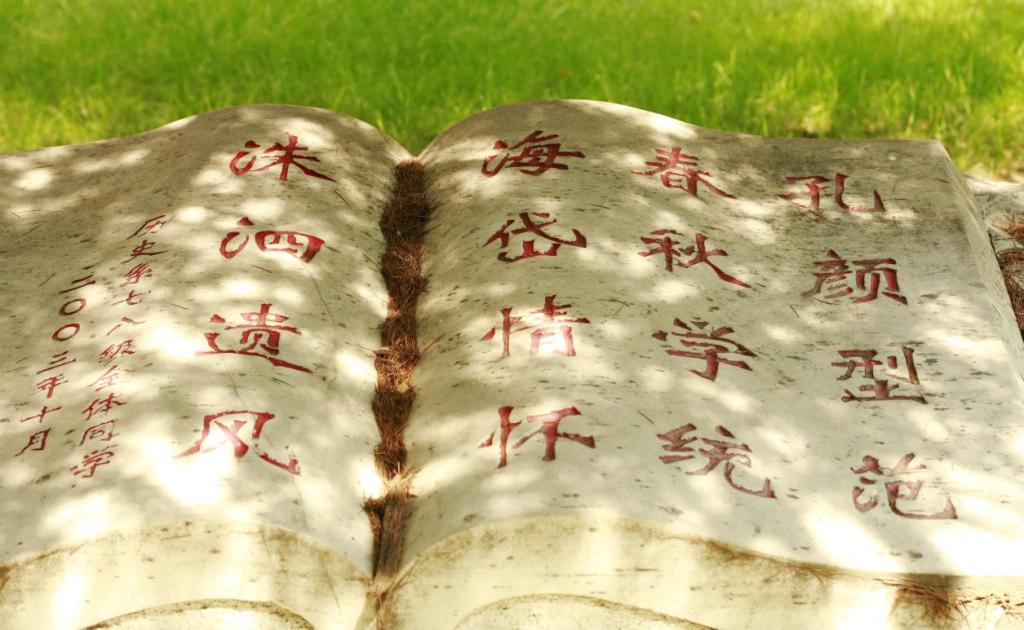 孔颜型范
春秋学统
海岱情怀
洙泗遗风
历史系七八级全体同学
二〇〇三年十月